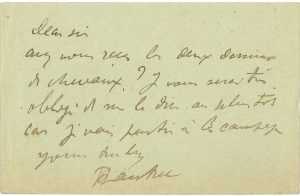 Dear sir
avez vous reçu les deux dessins
de chevaux? Je vous serai très
obligé de me le dire au plus tôt
car je vais partir à la campagne
yours truly